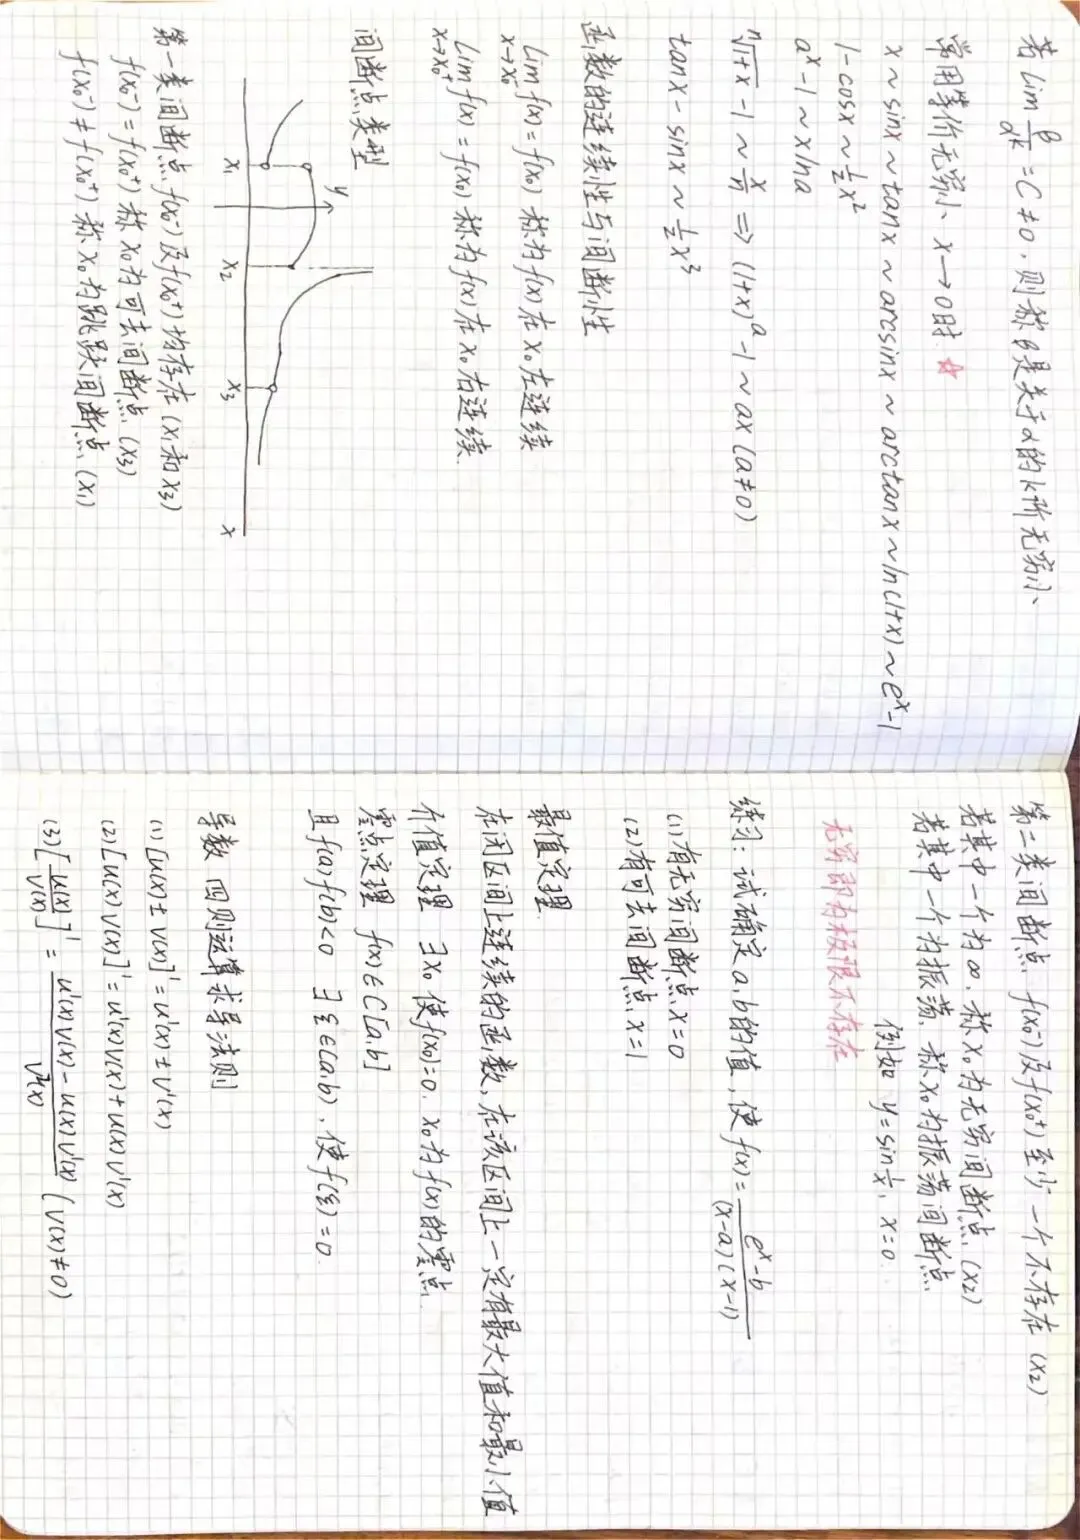 若 lim β/αᵏ = C ≠ 0，则称β是关于α的k阶无穷小
常用等价无穷小 x→0时 ☆
x ~ sinx ~ tanx ~ arcsinx ~ arctanx ~ ln(1+x) ~ eˣ-1
1-cosx ~ ½x²
aˣ-1 ~ xlna
ⁿ√(1+x) - 1 ~ x/n ⇒ (1+x)ᵃ-1 ~ ax (a≠0)
tanx - sinx ~ ½x³
函数的连续性与间断性
lim x→x₀⁻ f(x) = f(x₀) 称为f(x)在x₀左连续
lim x→x₀⁺ f(x) = f(x₀) 称为f(x)在x₀右连续
间断点类型
y
x₁ x₂ x₃ x
第一类间断点 f(x₀⁻)及f(x₀⁺)均存在 (x₁和x₃)
f(x₀⁻) = f(x₀⁺) 称x₀为可去间断点 (x₃)
f(x₀⁻) ≠ f(x₀⁺) 称x₀为跳跃间断点 (x₁)
第二类间断点 f(x₀⁻)及f(x₀⁺)至少一个不存在 (x₂)
若其中一个为∞，称x₀为无穷间断点 (x₂)
若其中一个为振荡，称x₀为振荡间断点
例如 y=sin 1/x，x=0
无穷即为极限不存在
练习：试确定a,b的值，使f(x) = (eˣ-b)/((x-a)(x-1))
(1) 有无穷间断点x=0
(2) 有可去间断点x=1
最值定理
在闭区间上连续的函数，在该区间上一定有最大值和最小值
介值定理 ∃x₀ 使f(x₀)=0，x₀为f(x)的零点
零点定理 f(x)∈C[a,b]
且f(a)f(b)<0 ∃ξ∈(a,b)，使f(ξ)=0
导数 四则运算求导法则
(1) [u(x)±v(x)]' = u'(x)±v'(x)
(2) [u(x)v(x)]' = u'(x)v(x)+u(x)v'(x)
(3) [u(x)/v(x)]' = (u'(x)v(x)-u(x)v'(x))/v²(x) (v(x)≠0)